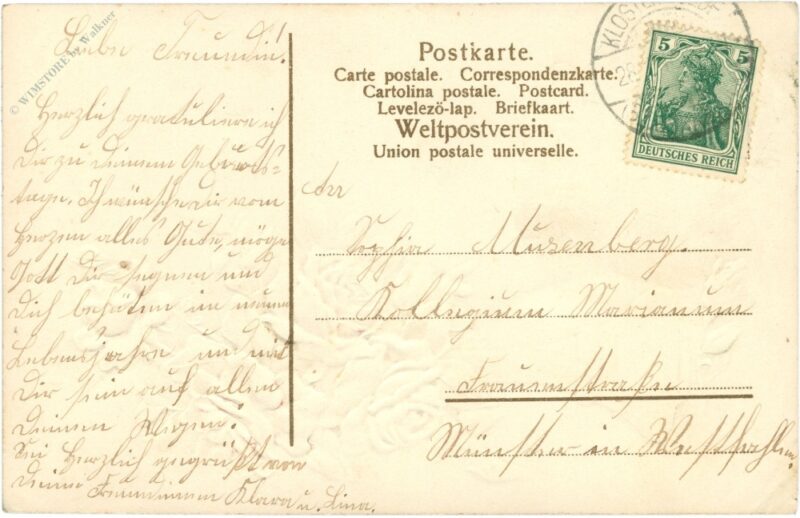 © WIMSTORE by Walkner
Liebe Freundin!
Herzlich gratuliere ich
Dir zu Deinem Geburts-
tage. Ich wünsche Dir vom
Herzen alles Gute, möge
Gott Dir segnen und
Dich behüten im neuen
Lebensjahre und mit
Dir sein auf allen
Deinen Wegen!
Sei Herzlich gegrüßt von
Deine Freundinnen Klara u. Lina.
Postkarte.
Carte postale. Correspondenzkarte.
Cartolina postale. Postcard.
Levelezö-lap. Briefkaart.
Weltpostverein.
Union postale universelle.
5 5
DEUTSCHES REICH
An
Sophia Musenberg.
Kollegium Marianum
Frauenstraße
Münster in Westfahlen.